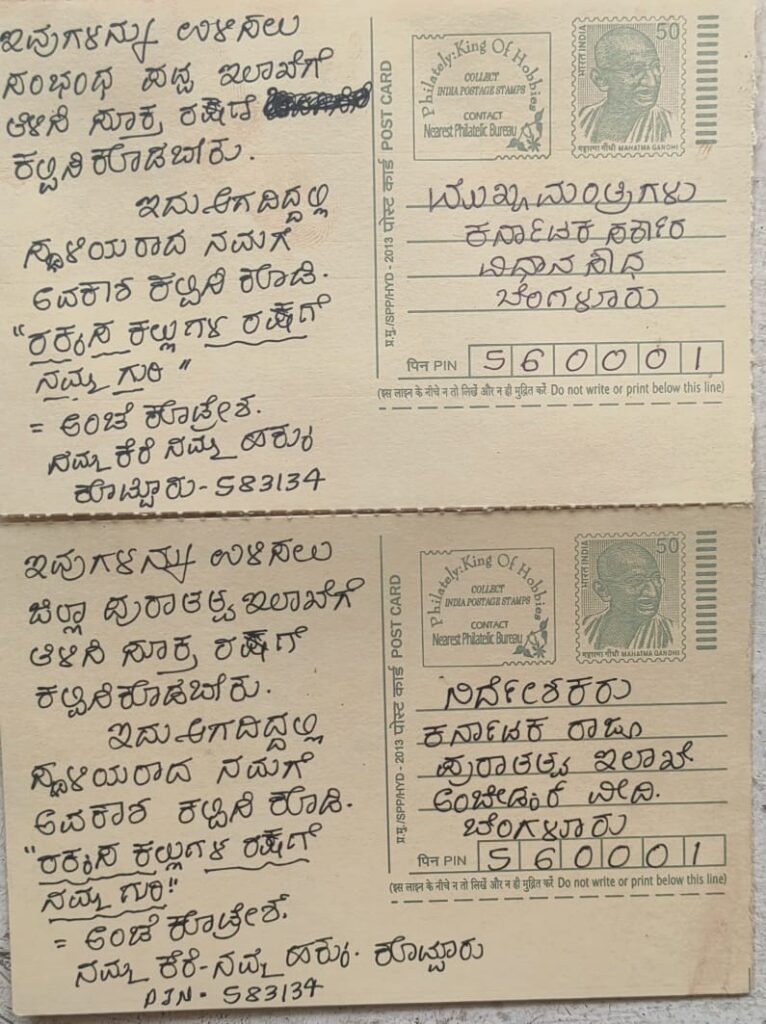 ಇವುಗಳನ್ನು ಉಳಿಸಲು
ಸಂಭಂಧ ಪಟ್ಟ ಇಲಾಖೆಗೆ
ತಿಳಿಸಿ ಸೂಕ್ತ ರಕ್ಷಣೆ
ಕಲ್ಪಿಸಿಕೊಡಬೇಕು.
ಇದು ಆಗದಿದ್ದಲ್ಲಿ
ಸ್ಥಳೀಯರಾದ ನಮಗೆ
ಅವಕಾಶ ಕಲ್ಪಿಸಿ ಕೊಡಿ.
"ರಕ್ಕಸ ಕಲ್ಲುಗಳ ರಕ್ಷಣೆಗೆ
ನಮ್ಮ ಗುರಿ"
= ಅಂಚೆ ಕೊಟ್ರೇಶ.
ನಮ್ಮ ಕೆರೆ ನಮ್ಮ ಹಕ್ಕು
ಕೊಟ್ಟೂರು - 583134
प्र.मु./SPP/HYD - 2013 पोस्ट कार्ड POST CARD
Philately: King Of Hobbies
COLLECT
INDIA POSTAGE STAMPS
CONTACT
Nearest Philatelic Bureau
50
भारत INDIA
महात्मा गाँधी MAHATMA GANDHI
ಮುಖ್ಯಮಂತ್ರಿಗಳು
ಕರ್ನಾಟಕ ಸರ್ಕಾರ
ವಿಧಾನ ಸೌಧ
ಬೆಂಗಳೂರು
पिन PIN 560001
(इस लाइन के नीचे न तो लिखें और न ही मुद्रित करें Do not write or print below this line)
ಇವುಗಳನ್ನು ಉಳಿಸಲು
ಜಿಲ್ಲಾ ಪುರಾತತ್ವ ಇಲಾಖೆಗೆ
ತಿಳಿಸಿ ಸೂಕ್ತ ರಕ್ಷಣೆಗೆ
ಕಲ್ಪಿಸಿಕೊಡಬೇಕು.
ಇದು ಆಗದಿದ್ದಲ್ಲಿ
ಸ್ಥಳೀಯರಾದ ನಮಗೆ
ಅವಕಾಶ ಕಲ್ಪಿಸಿ ಕೊಡಿ.
"ರಕ್ಕಸ ಕಲ್ಲುಗಳ ರಕ್ಷಣೆಗೆ
ನಮ್ಮ ಗುರಿ"
= ಅಂಚೆ ಕೊಟ್ರೇಶ್.
ನಮ್ಮ ಕೆರೆ - ನಮ್ಮ ಹಕ್ಕು. ಕೊಟ್ಟೂರು
PIN - 583134
प्र.मु./SPP/HYD - 2013 पोस्ट कार्ड POST CARD
Philately: King Of Hobbies
COLLECT
INDIA POSTAGE STAMPS
CONTACT
Nearest Philatelic Bureau
50
भारत INDIA
महात्मा गाँधी MAHATMA GANDHI
ನಿರ್ದೇಶಕರು
ಕರ್ನಾಟಕ ರಾಜ್ಯ
ಪುರಾತತ್ವ ಇಲಾಖೆ
ಅಂಬೇಡ್ಕರ್ ವೀದಿ.
ಬೆಂಗಳೂರು
पिन PIN 560001
(इस लाइन के नीचे न तो लिखें और न ही मुद्रित करें Do not write or print below this line)